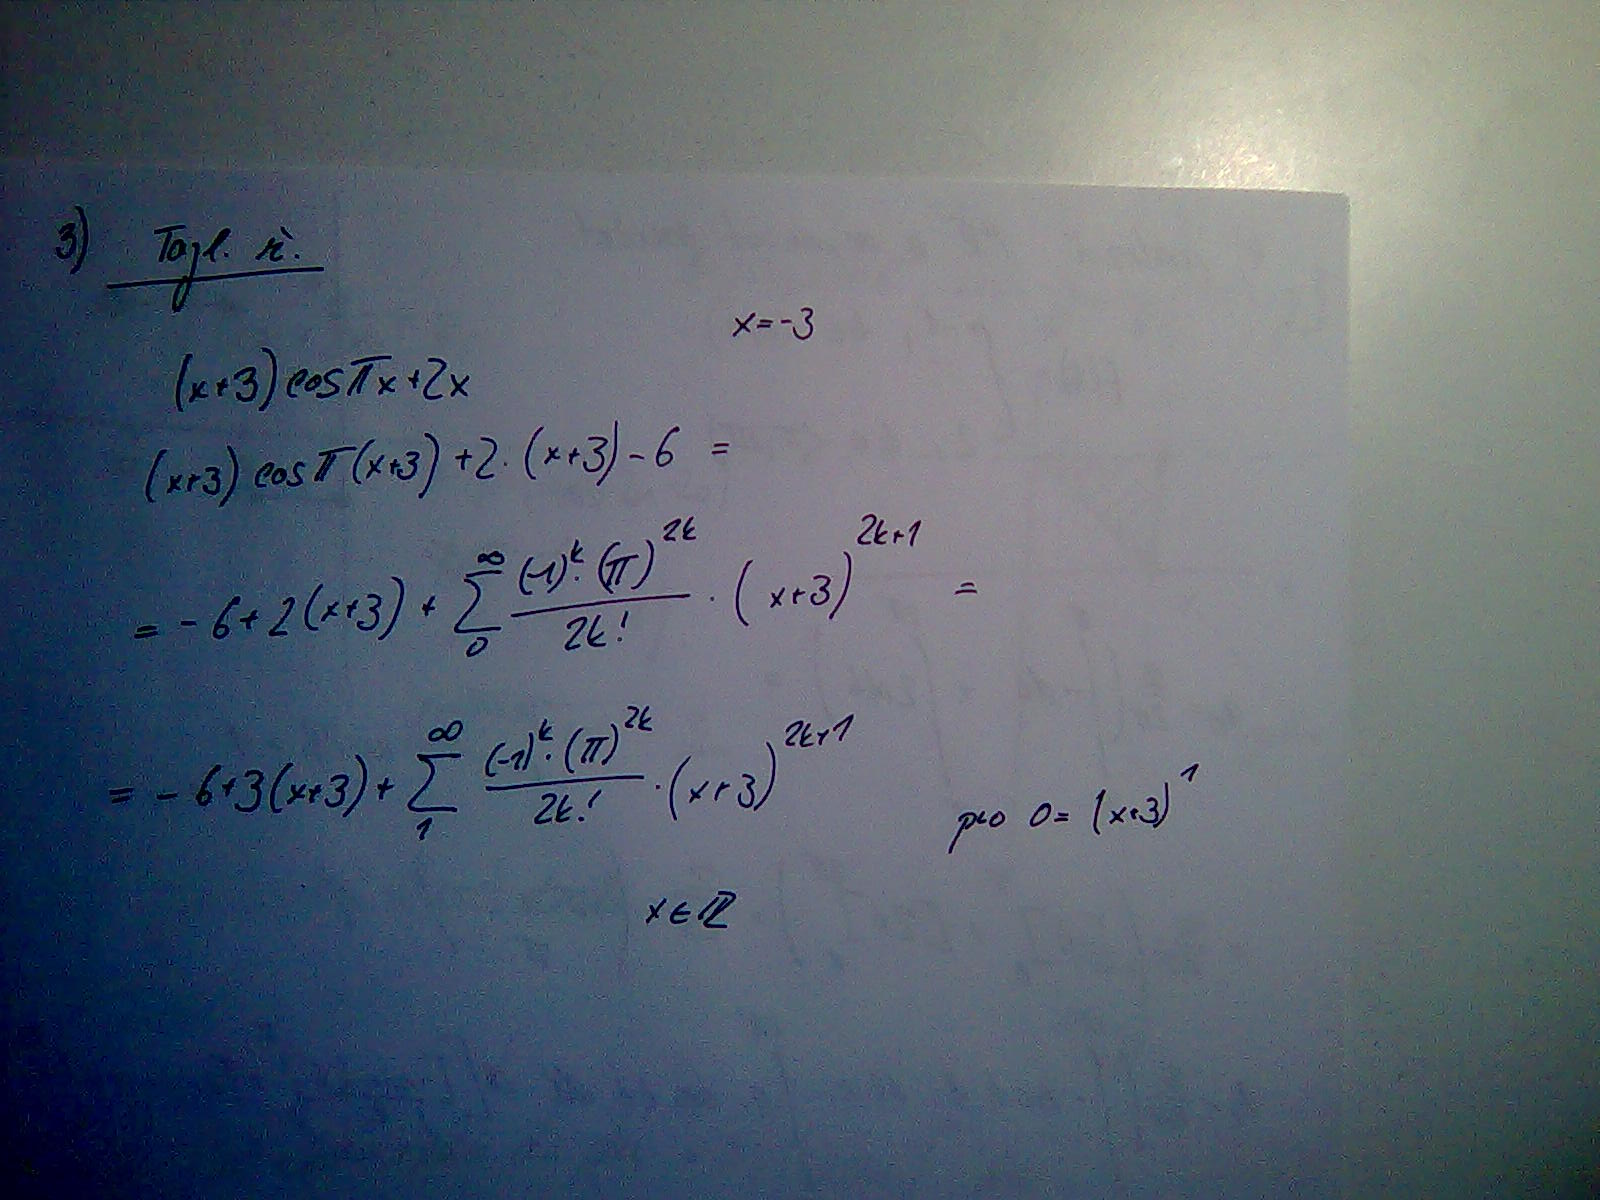 3) Tayl. ř.
x=-3
(x+3) cos πx+2x
(x+3) cos π(x+3) +2·(x+3)-6 =
= -6+2(x+3) + ∑_0^∞ \frac{(-1)^k·(π)^{2k}}{2k!} · (x+3)^{2k+1} =
= -6+3(x+3)+ ∑_1^∞ \frac{(-1)^k·(π)^{2k}}{2k!} ·(x+3)^{2k+1}
pro 0= (x+3)^1
x∈ℝ